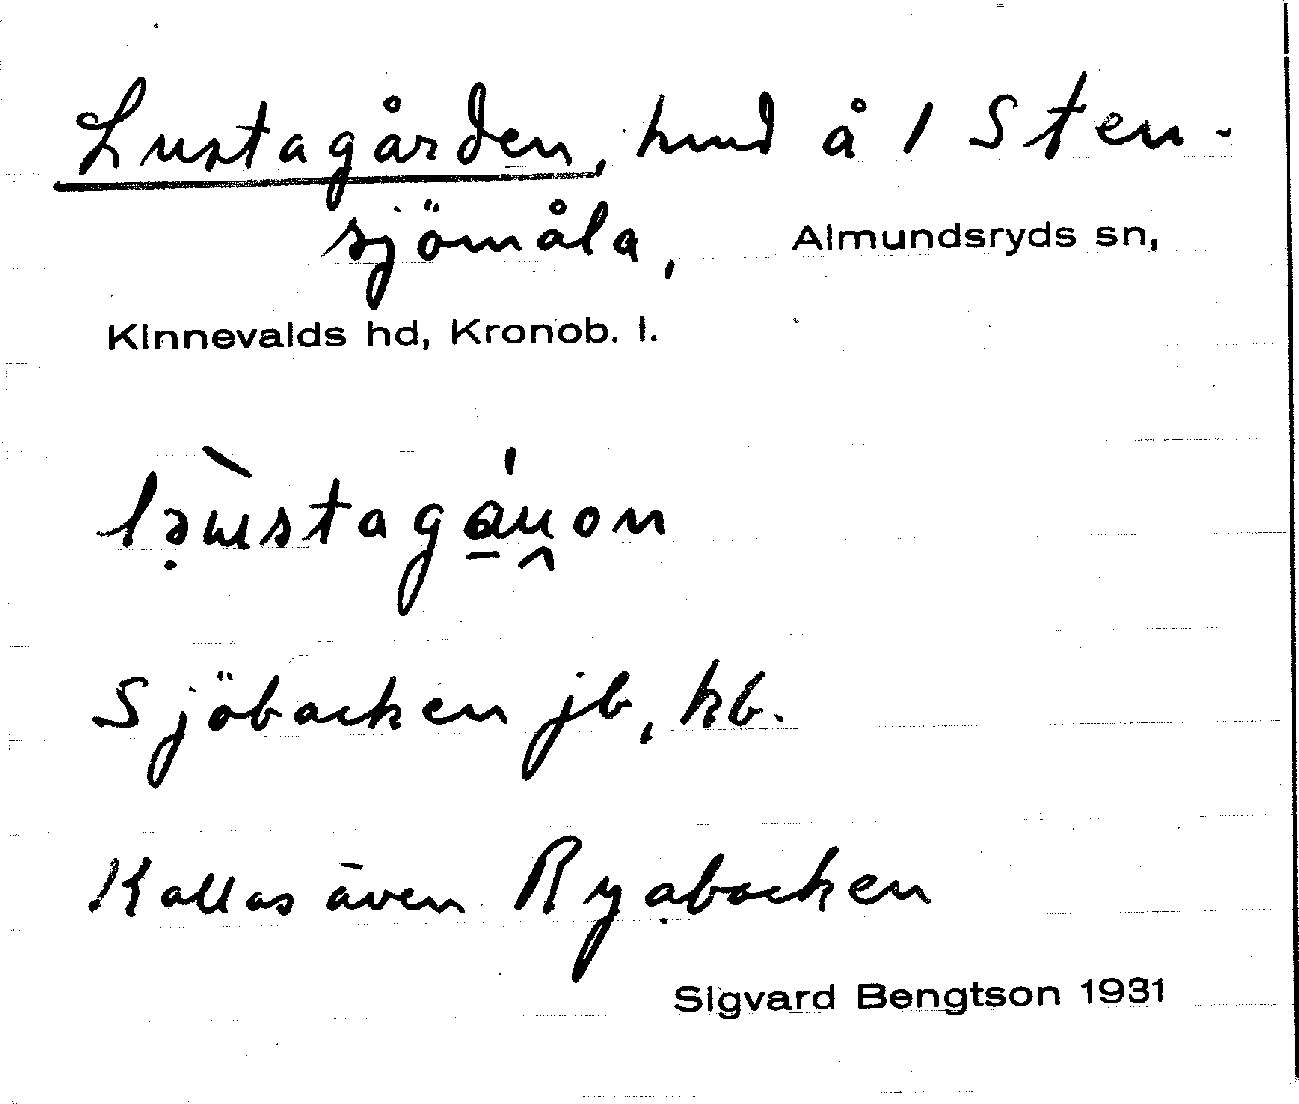 Lustagården, hmd å 1 Sten-
sjömåla, Almundsryds sn,
Kinnevalds hd, Kronob. l.
Sjöbacken jb, kb.
Kallas även Ryabacken
Sigvard Bengtson 1931